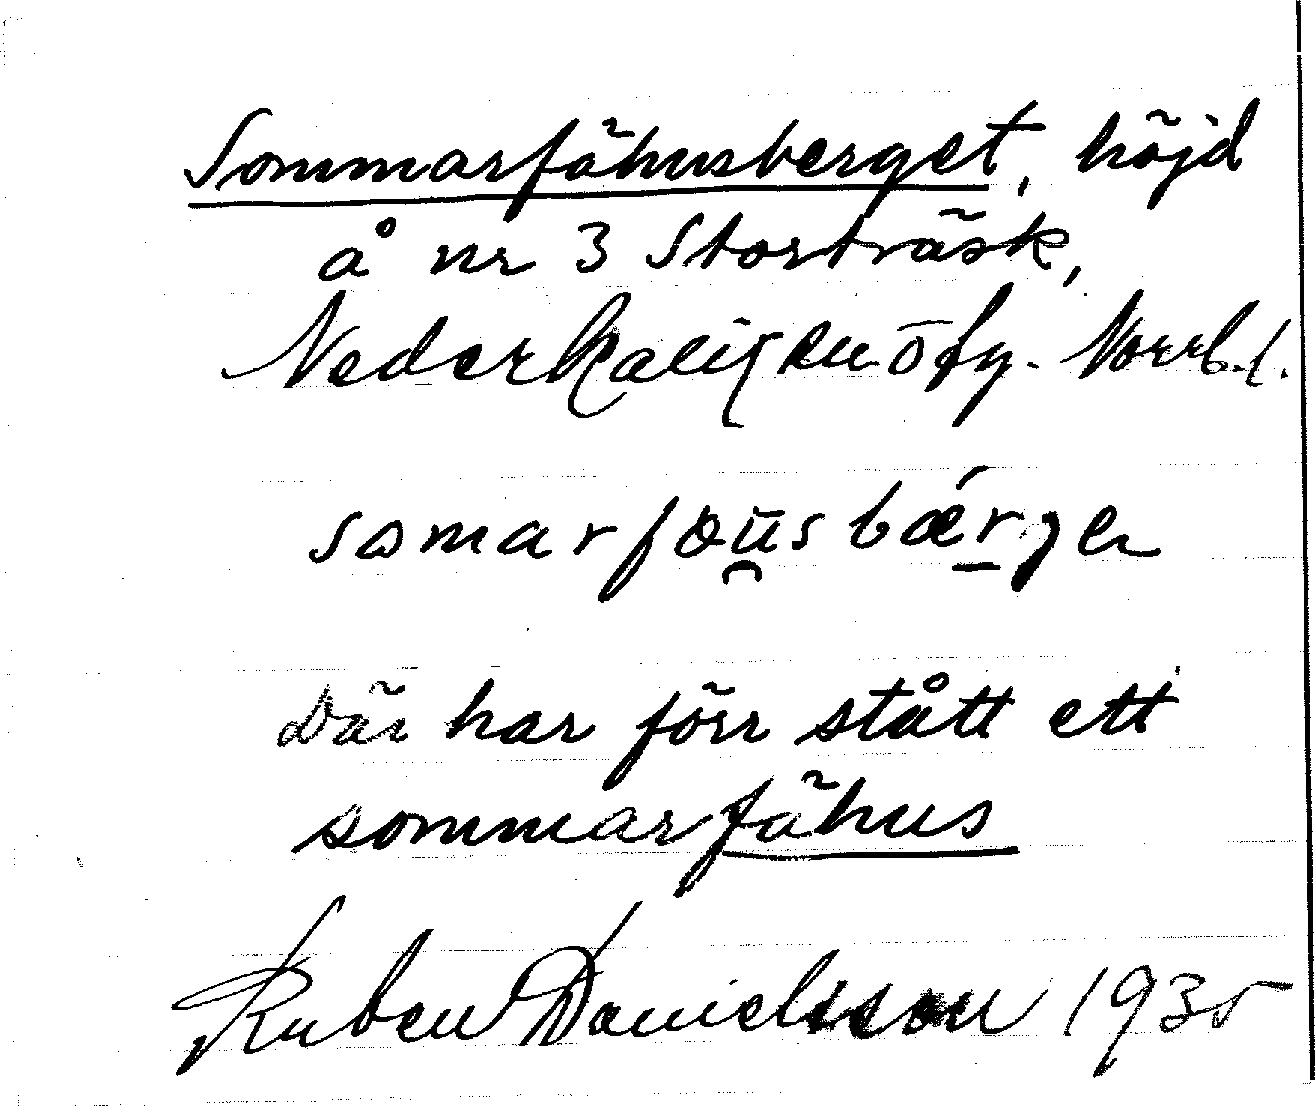 Sommarfähusberget, höjd
å nr 3 Storträsk,
Nederkalix sn ö fg. Norrb. l.
somarföu̯sbǽrge
Där har förr stått ett
sommarfähus
Ruben Danielsson 1935